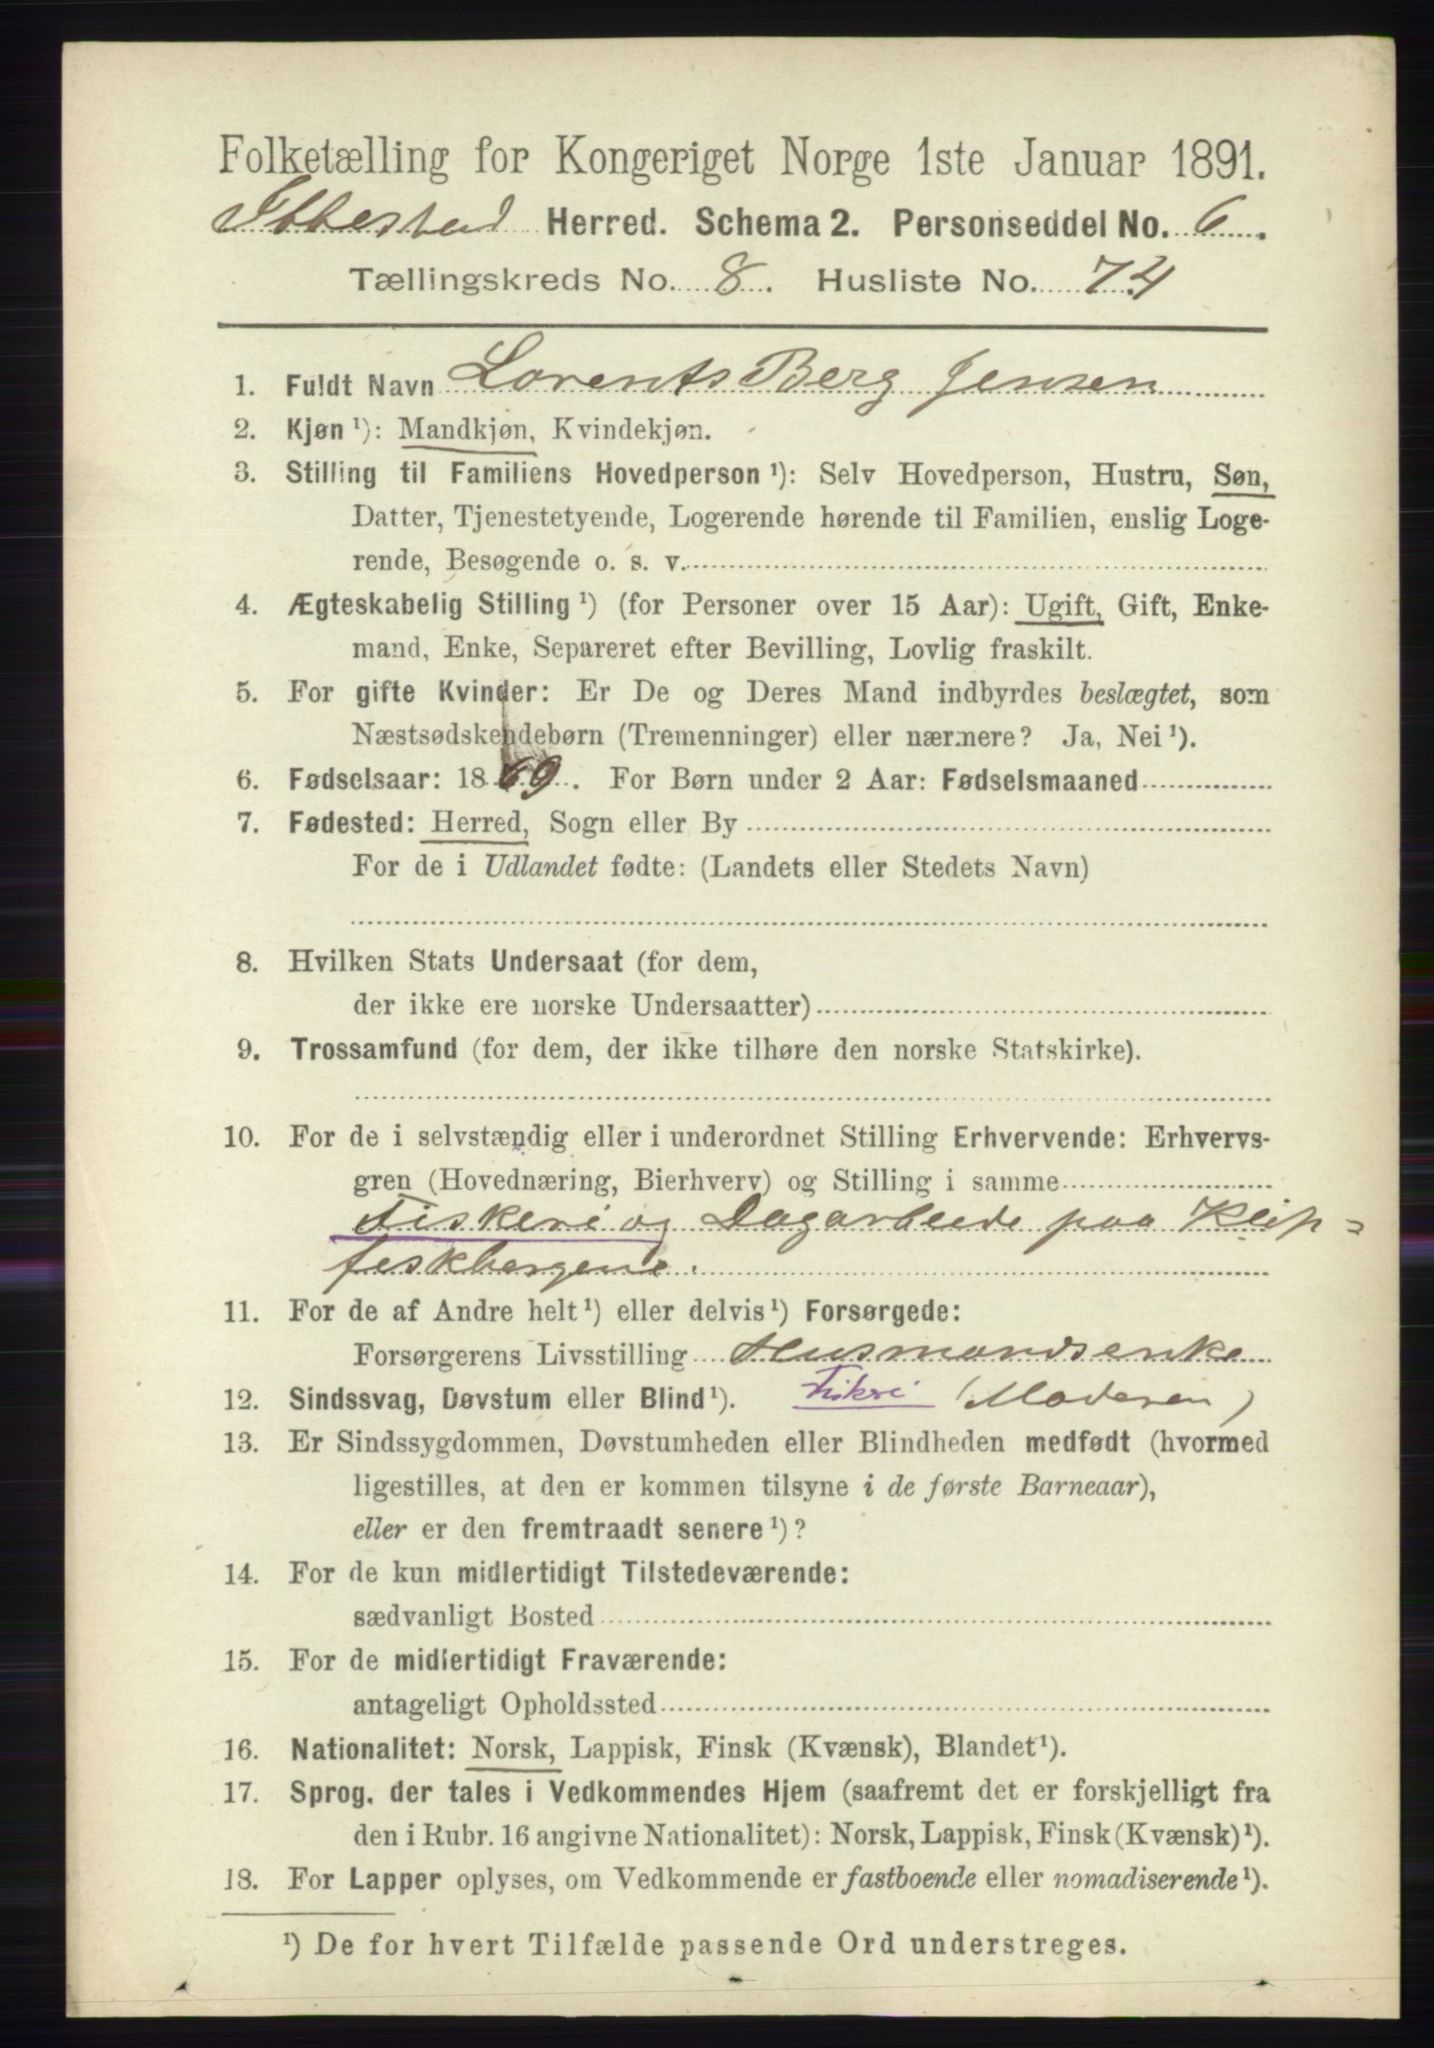 Folketælling for Kongeriget Norge 1ste Januar 1891.
Ibbestad Herred. Schema 2. Personseddel No. 6.
Tællingskreds No. 8. Husliste No. 74
1. Fuldt Navn Lorents Berg Jensen
2. Kjøn ¹): Mandkjøn, Kvindekjøn.
3. Stilling til Familiens Hovedperson ¹): Selv Hovedperson, Hustru, Søn,
Datter, Tjenestetyende, Logerende hørende til Familien, enslig Loge-
rende, Besøgende o. s. v.
4. Ægteskabelig Stilling ¹) (for Personer over 15 Aar): Ugift, Gift, Enke-
mand, Enke, Separeret efter Bevilling, Lovlig fraskilt.
5. For gifte Kvinder: Er De og Deres Mand indbyrdes beslægtet, som
Næstsødskendebørn (Tremenninger) eller nærmere? Ja, Nei ¹).
6. Fødselsaar: 1869. For Børn under 2 Aar: Fødselsmaaned
7. Fødested: Herred, Sogn eller By
For de i Udlandet fødte: (Landets eller Stedets Navn)
8. Hvilken Stats Undersaat (for dem,
der ikke ere norske Undersaatter)
9. Trossamfund (for dem, der ikke tilhøre den norske Statskirke).
10. For de i selvstændig eller i underordnet Stilling Erhvervende: Erhvervs-
gren (Hovednæring, Bierhverv) og Stilling i samme
Fiskeri og Dagarbeide paa Klip=
fiskbergene.
11. For de af Andre helt ¹) eller delvis ¹) Forsørgede:
Forsørgerens Livsstilling Husmandsenke
12. Sindssvag, Døvstum eller Blind ¹). Fiskeri (Moderen)
13. Er Sindssygdommen, Døvstumheden eller Blindheden medfødt (hvormed
ligestilles, at den er kommen tilsyne i de første Barneaar),
eller er den fremtraadt senere ¹)?
14. For de kun midlertidigt Tilstedeværende:
sædvanligt Bosted
15. For de midlertidigt Fraværende:
antageligt Opholdssted
16. Nationalitet: Norsk, Lappisk, Finsk (Kvænsk), Blandet ¹).
17. Sprog, der tales i Vedkommendes Hjem (saafremt det er forskjelligt fra
den i Rubr. 16 angivne Nationalitet): Norsk, Lappisk, Finsk (Kvænsk) ¹).
18. For Lapper oplyses, om Vedkommende er fastboende eller nomadiserende ¹).
¹) De for hvert Tilfælde passende Ord understreges.